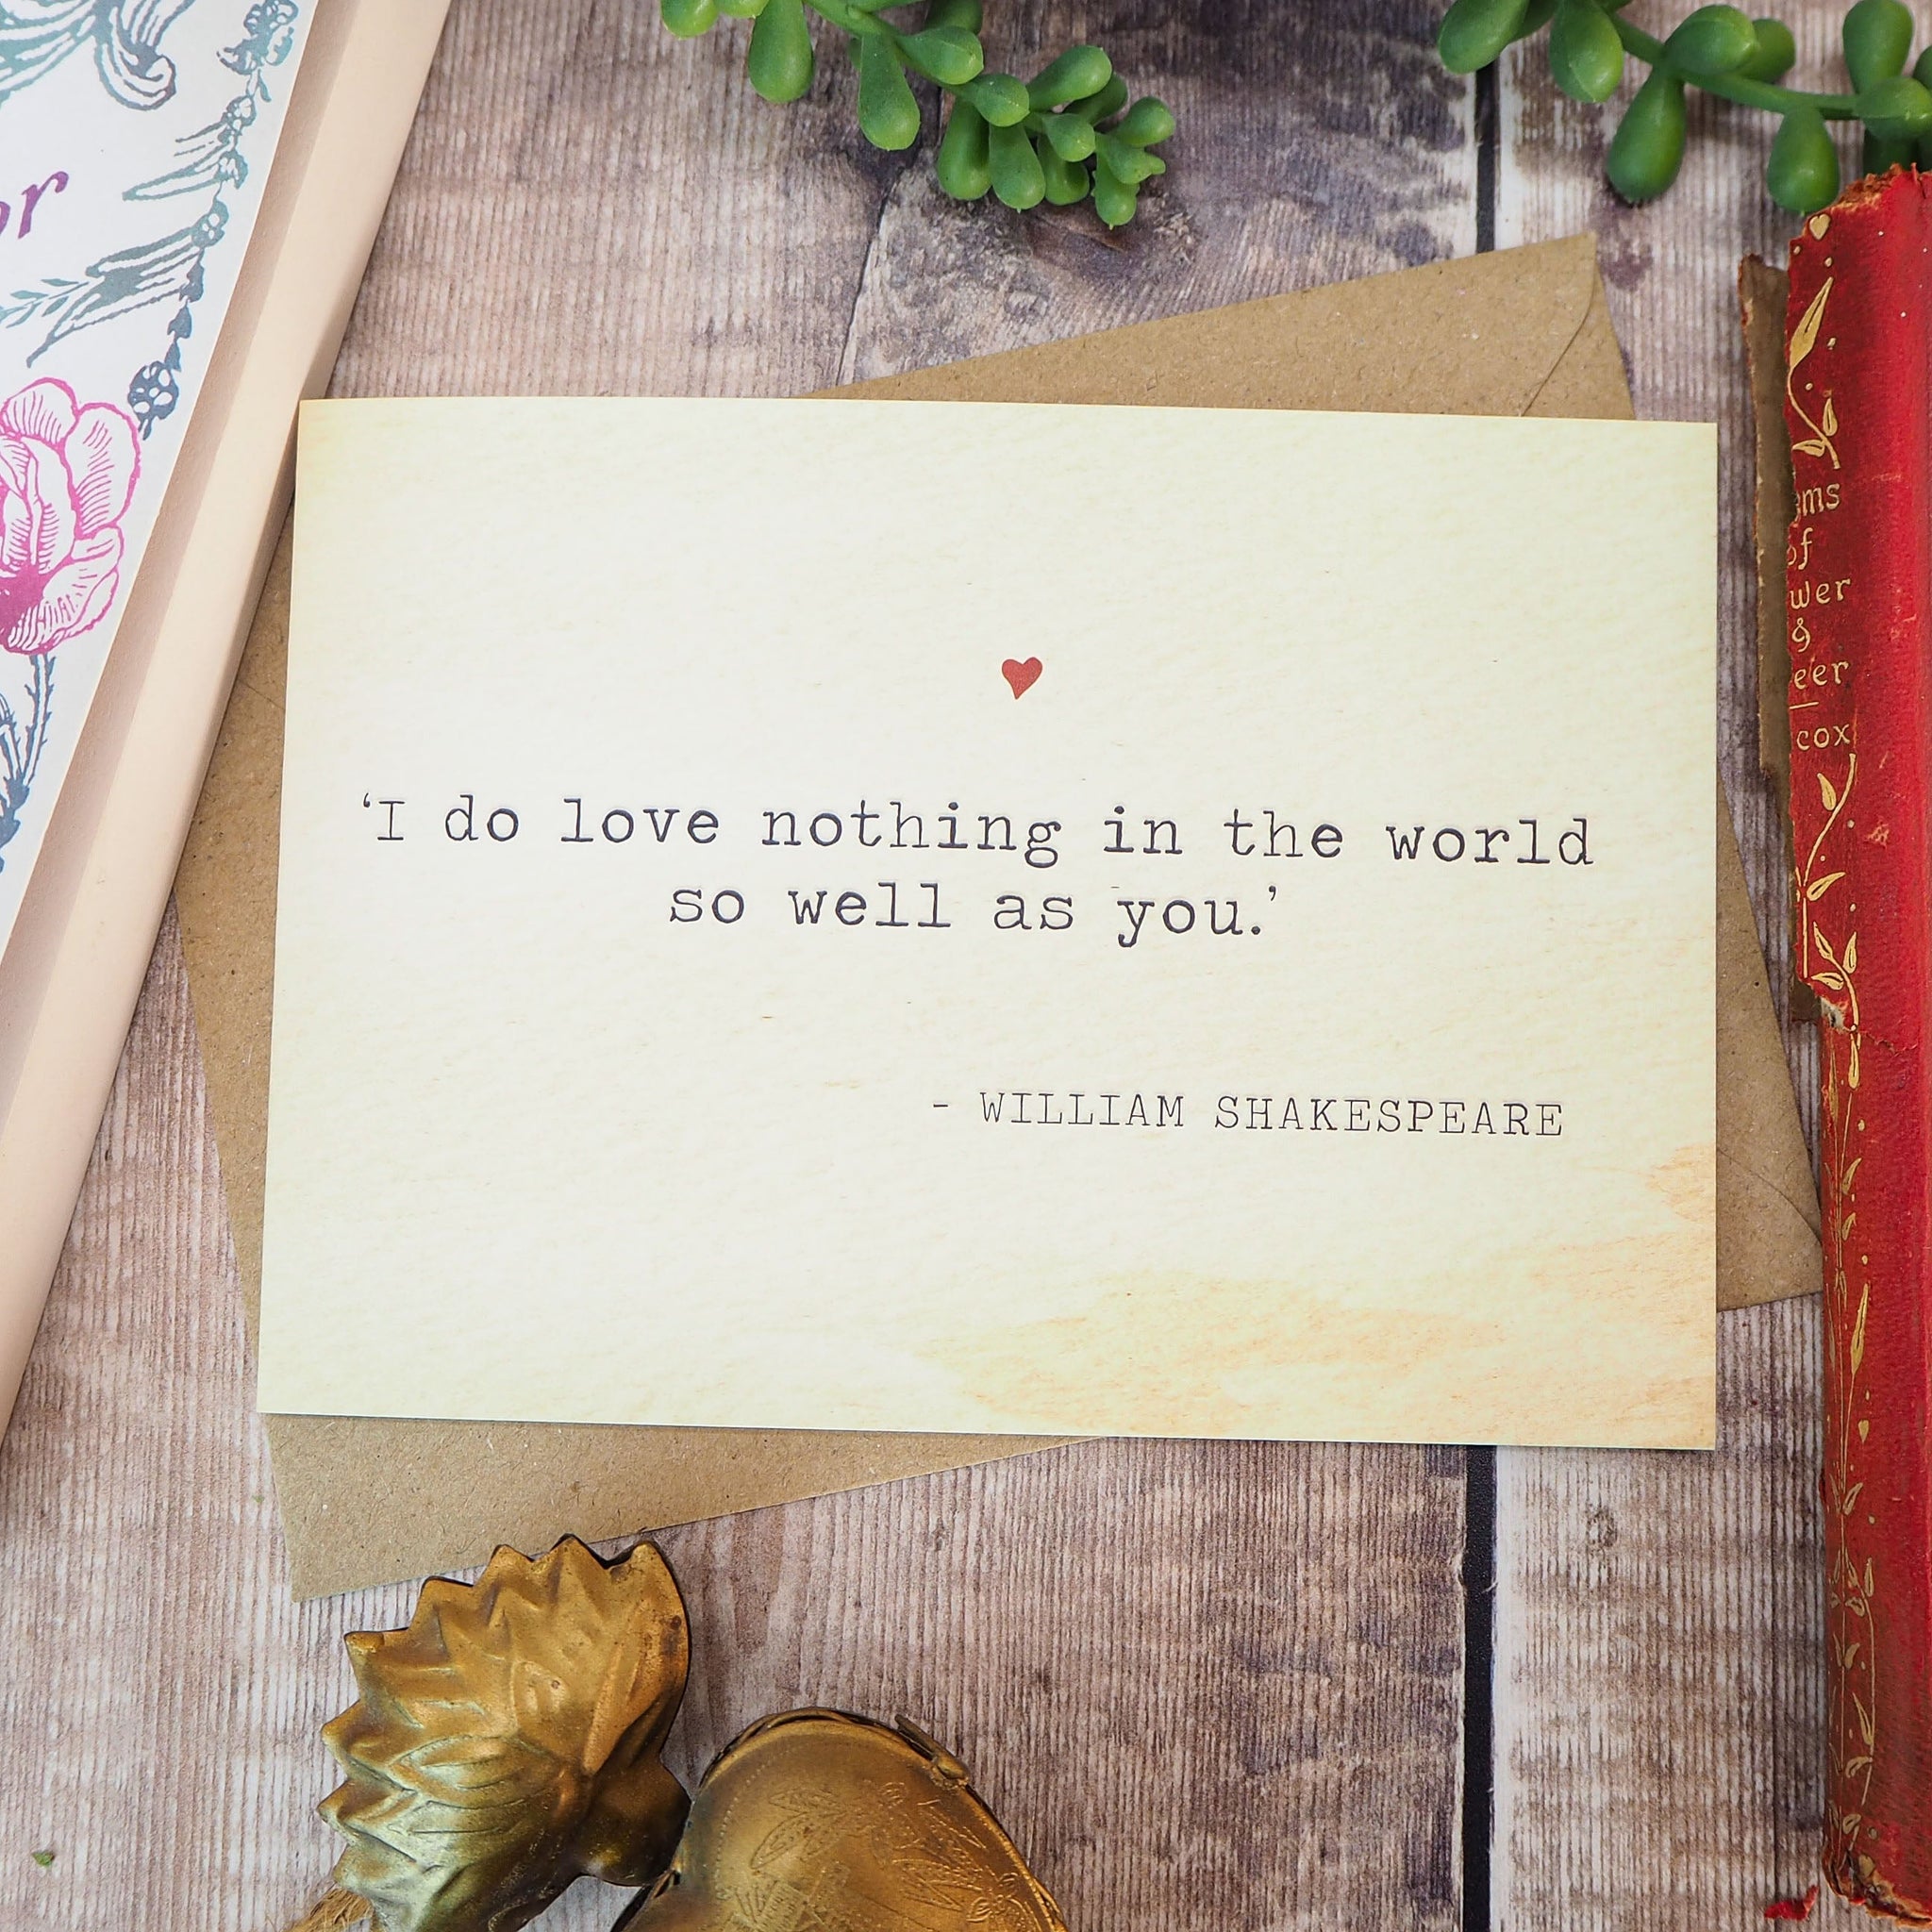 ‘I do love nothing in the world
so well as you.’
- WILLIAM SHAKESPEARE
of
&
cox